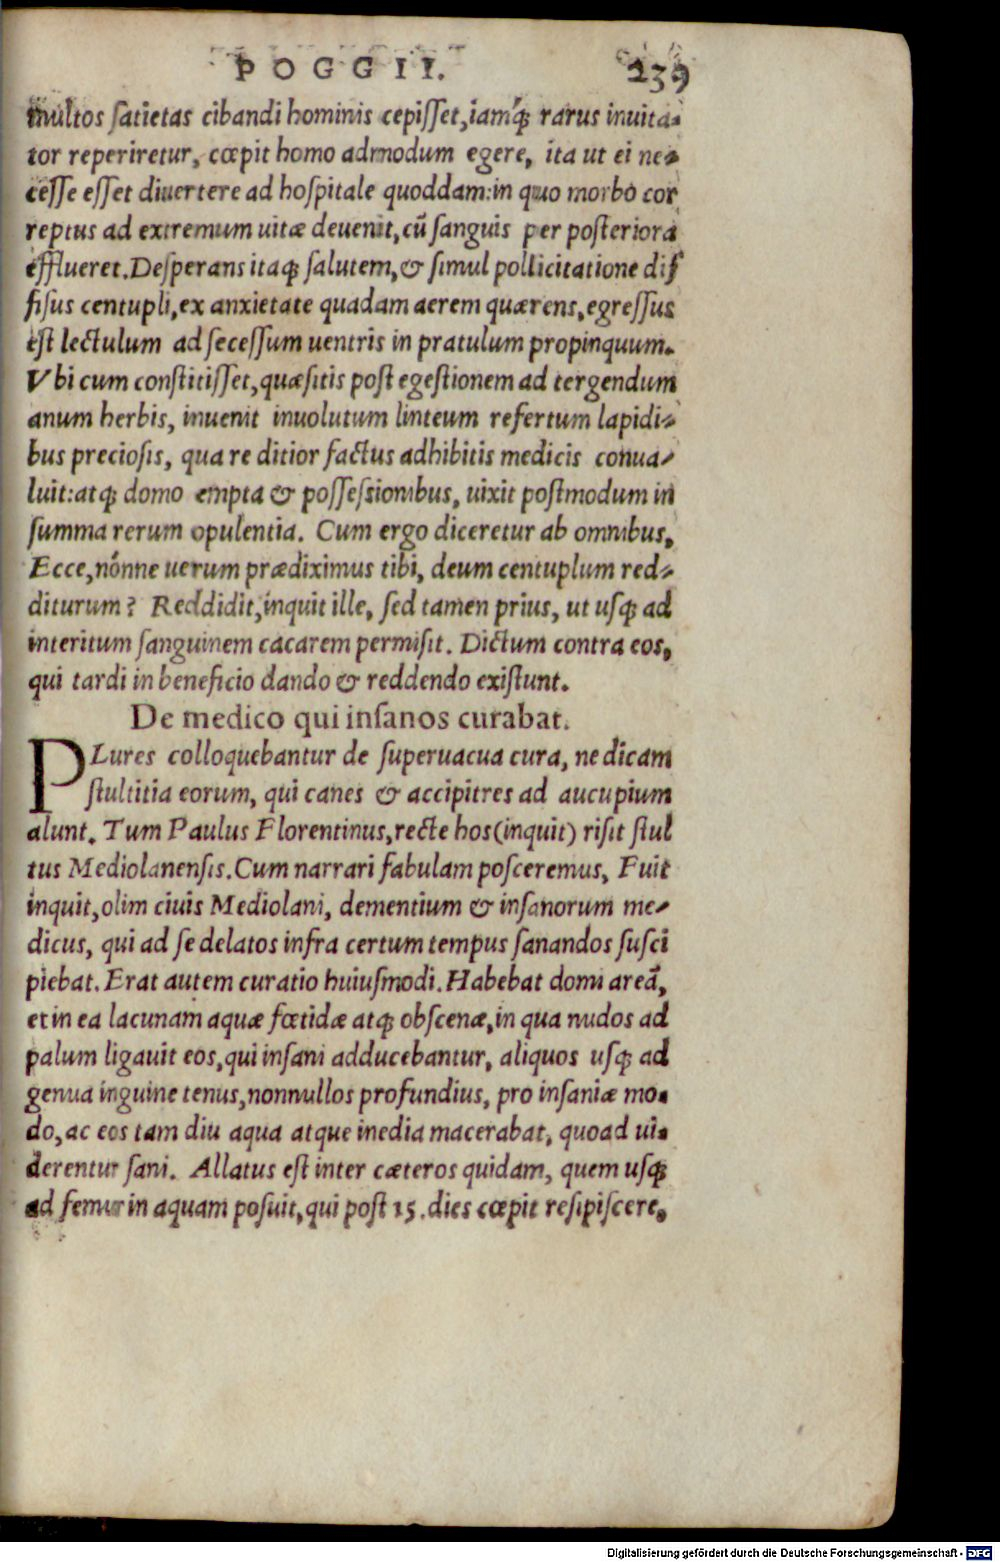 POGGII. 239
multos satietas cibandi hominis cepisset, iamq́; rarus inuita-
tor reperiretur, cœpit homo admodum egere, ita ut ei ne-
cesse esset diuertere ad hospitale quoddam: in quo morbo cor
reptus ad extremum uitæ deuenit, cũ sanguis per posteriora
efflueret. Desperans itaq; salutem, & simul pollicitatione dif
fisus centupli, ex anxietate quadam aerem quærens, egressus
est lectulum ad secessum uentris in pratulum propinquum.
Vbi cum constitisset, quæsitis post egestionem ad tergendum
anum herbis, inuenit inuolutum linteum refertum lapidi-
bus preciosis, qua re ditior factus adhibitis medicis conua-
luit: atq; domo empta & possessionibus, uixit postmodum in
summa rerum opulentia. Cum ergo diceretur ab omnibus,
Ecce, nónne uerum prædiximus tibi, deum centuplum red-
diturum? Reddidit, inquit ille, sed tamen prius, ut usq; ad
interitum sanguinem cacarem permisit. Dictum contra eos,
qui tardi in beneficio dando & reddendo existunt.
De medico qui insanos curabat.
PLures colloquebantur de superuacua cura, ne dicam
stultitia eorum, qui canes & accipitres ad aucupium
alunt. Tum Paulus Florentinus, recte hos (inquit) risit stul
tus Mediolanensis. Cum narrari fabulam posceremus, Fuit
inquit, olim ciuis Mediolani, dementium & insanorum me-
dicus, qui ad se delatos infra certum tempus sanandos susci
piebat. Erat autem curatio huiusmodi. Habebat domi areã,
et in ea lacunam aquæ fœtidæ atq; obscenæ, in qua nudos ad
palum ligauit eos, qui insani adducebantur, aliquos usq; ad
genua inguine tenus, nonnullos profundius, pro insaniæ mo-
do, ac eos tam diu aqua atque inedia macerabat, quoad ui-
derentur sani. Allatus est inter cæteros quidam, quem usq;
ad femur in aquam posuit, qui post 15. dies cœpit resipiscere,
Digitalisierung gefördert durch die Deutsche Forschungsgemeinschaft - DFG